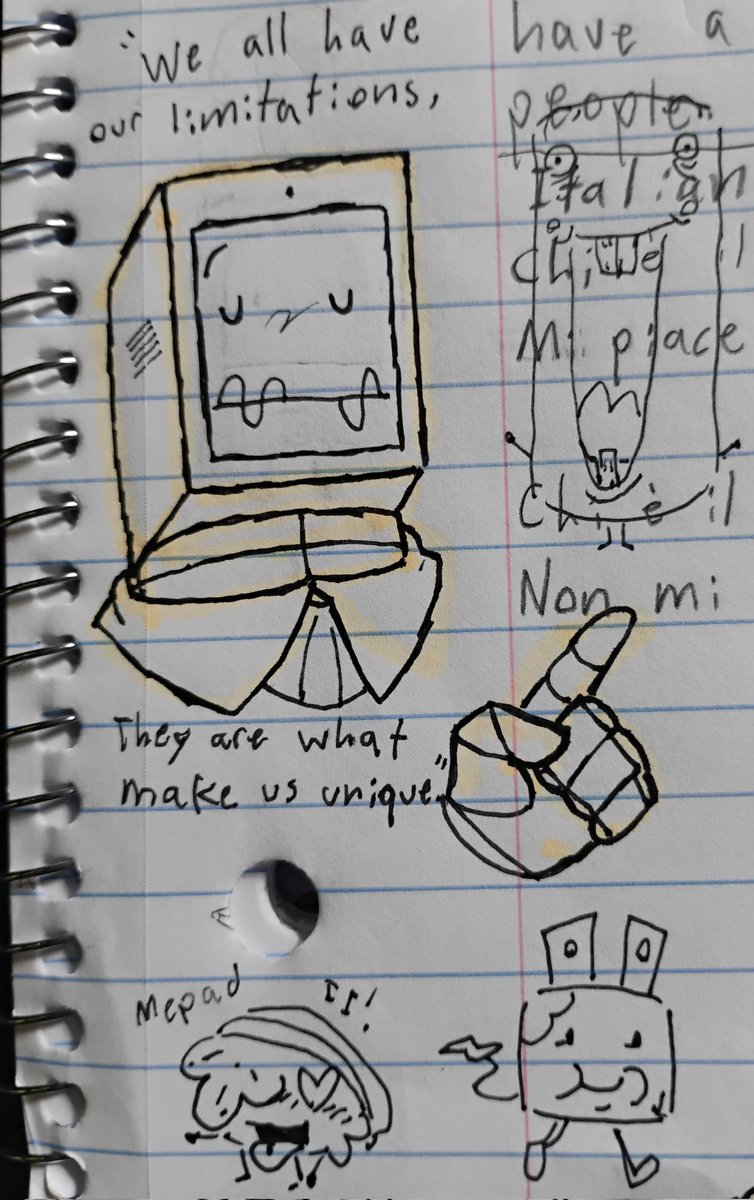 "We all have
our limitations,
They are what
make us unique."
Mepad
!
have a
people.
Italian
Chi è il
Mi piace
Chi è il
Non mi